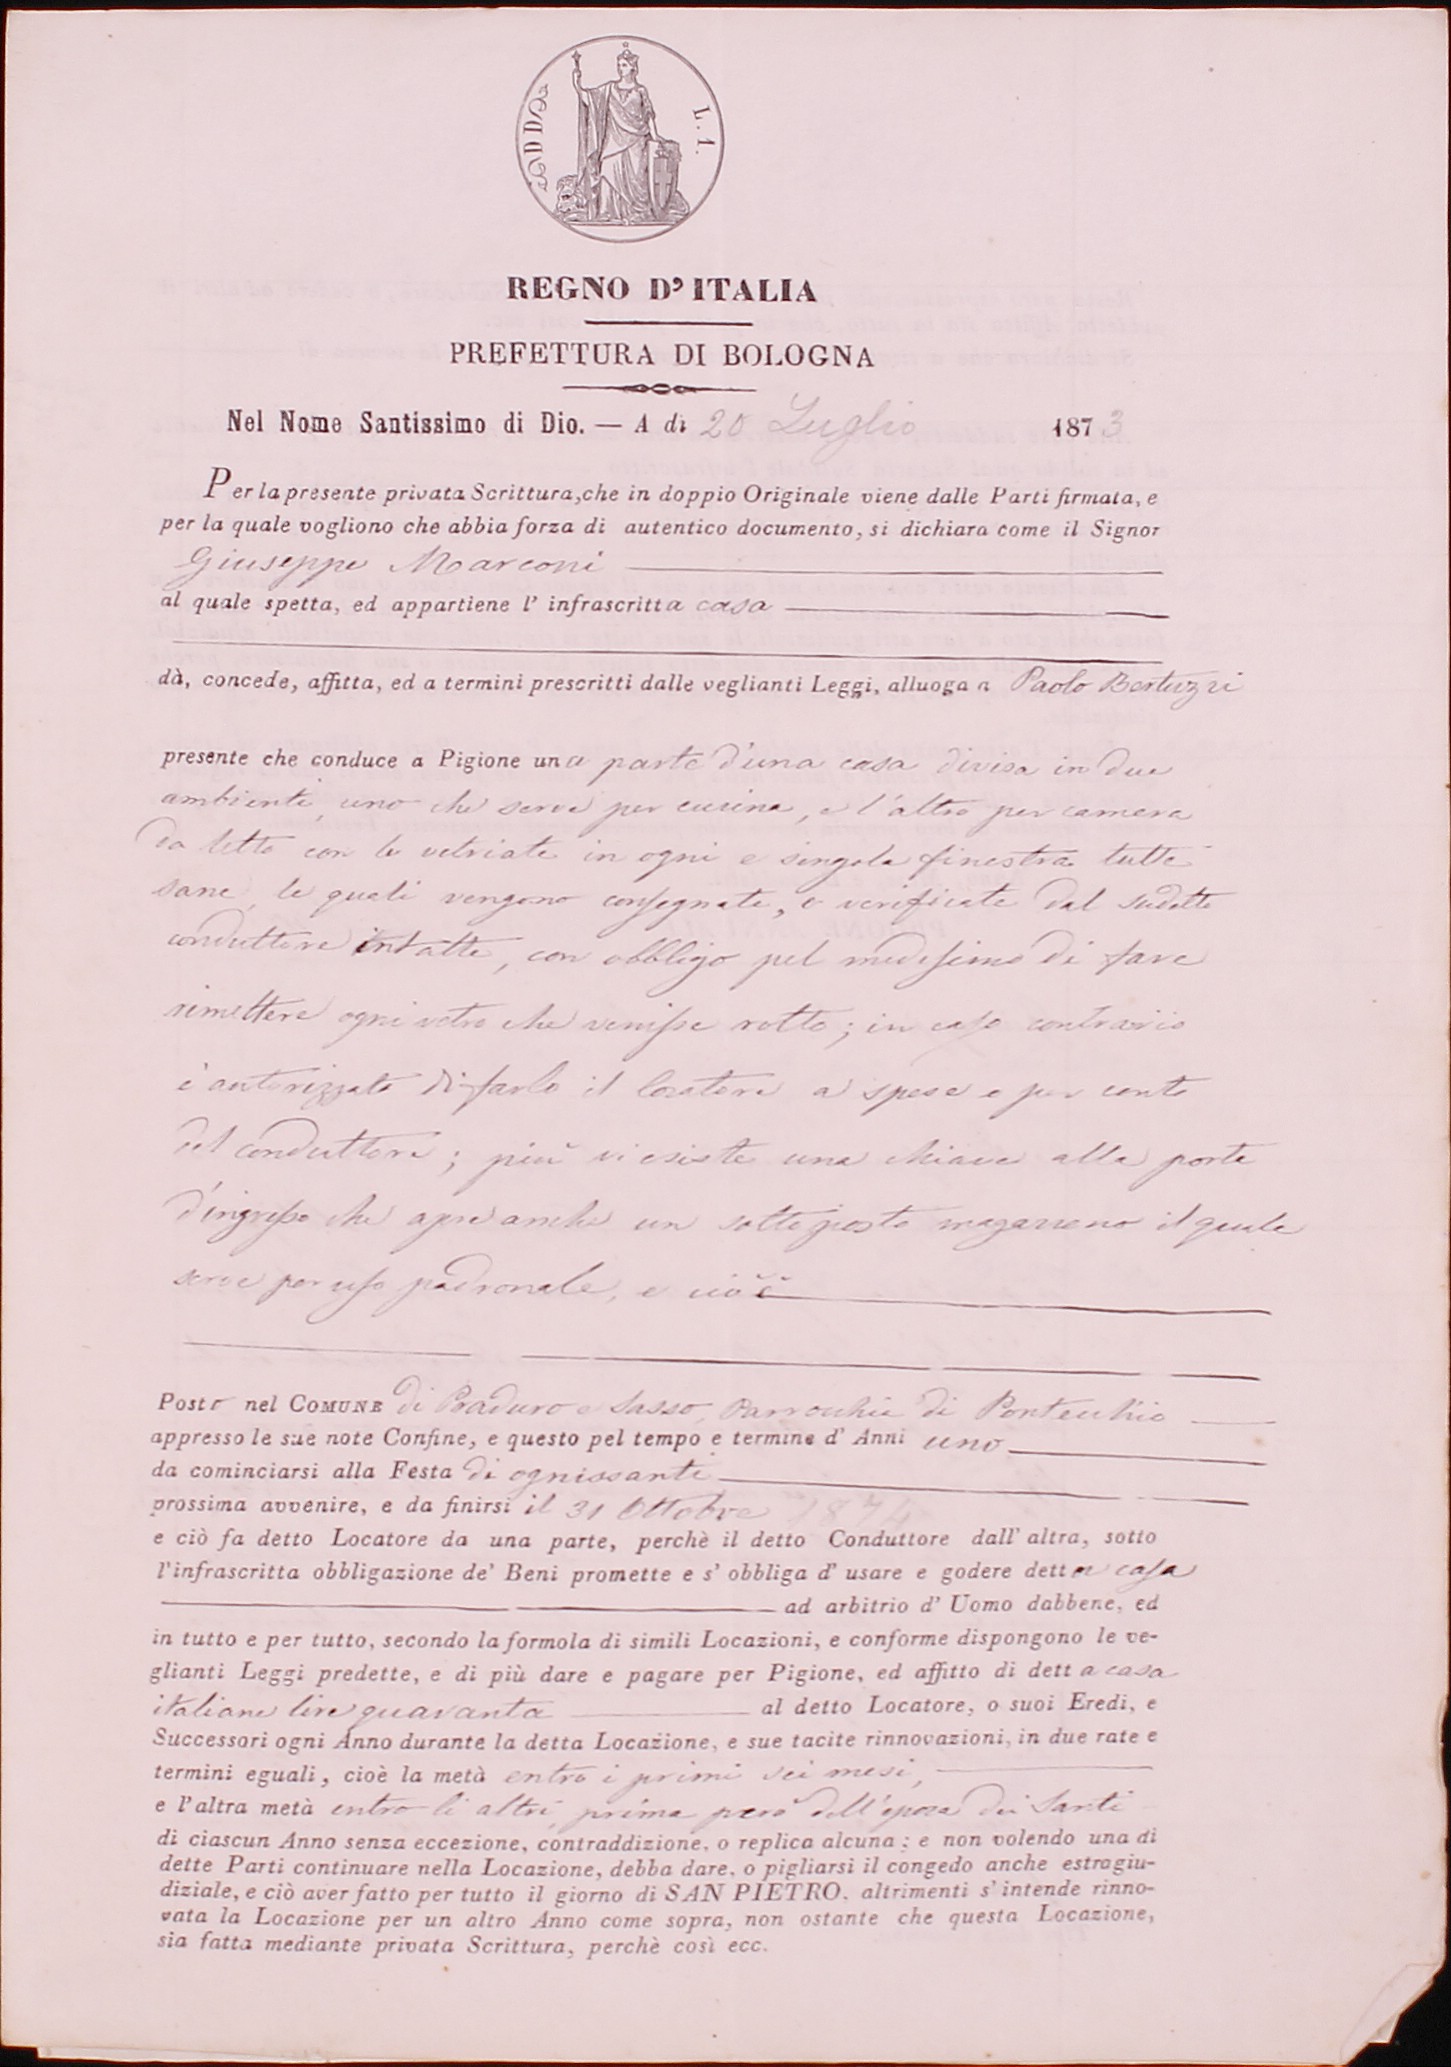 L. 1.
REGNO D' ITALIA
PREFETTURA DI BOLOGNA
Nel Nome Santissimo di Dio. — A dì 20 Luglio 1873
Per la presente privata Scrittura, che in doppio Originale viene dalle Parti firmata, e
per la quale vogliono che abbia forza di autentico documento, si dichiara come il Signor
Giuseppe Marconi
al quale spetta, ed appartiene l' infrascritta casa
dà, concede, affitta, ed a termini prescritti dalle veglianti Leggi, alluoga a Paolo Bertuzzi
presente che conduce a Pigione una parte d'una casa divisa in due
ambienti, uno che serve per cucina, e l'altro per camera
da letto con le vetriate in ogni e singola finestra tutte
sane, le quali vengono consegnate, e verificate dal sudetto
conduttore intatte, con obbligo pel medesimo di fare
rimettere ogni vetro che venisse rotto; in caso contrario
è autorizzato di farlo il locatore a spese e per conto
del conduttore; più vi esiste una chiave alla porta
d'ingresso che apre anche un sottoposto magazzeno il quale
serve per uso padronale, e ciò è
Posto nel COMUNE di Praduro e Sasso, Parrocchia di Pontecchio
appresso le sue note Confine, e questo pel tempo e termine d' Anni uno
da cominciarsi alla Festa di ognissanti
prossima avvenire, e da finirsi il 31 Ottobre 1874
e ciò fa detto Locatore da una parte, perchè il detto Conduttore dall' altra, sotto
l'infrascritta obbligazione de' Beni promette e s' obbliga d' usare e godere detta casa
ad arbitrio d' Uomo dabbene, ed
in tutto e per tutto, secondo la formola di simili Locazioni, e conforme dispongono le ve-
glianti Leggi predette, e di più dare e pagare per Pigione, ed affitto di detta casa
italiane lire quaranta al detto Locatore, o suoi Eredi, e
Successori ogni Anno durante la detta Locazione, e sue tacite rinnovazioni, in due rate e
termini eguali, cioè la metà entro i primi sei mesi,
e l'altra metà entro li altri, prima però dell'epoca dei Santi
di ciascun Anno senza eccezione, contraddizione, o replica alcuna; e non volendo una di
dette Parti continuare nella Locazione, debba dare, o pigliarsi il congedo anche estragiu-
diziale, e ciò aver fatto per tutto il giorno di SAN PIETRO, altrimenti s' intende rinno-
vata la Locazione per un altro Anno come sopra, non ostante che questa Locazione,
sia fatta mediante privata Scrittura, perchè così ecc.